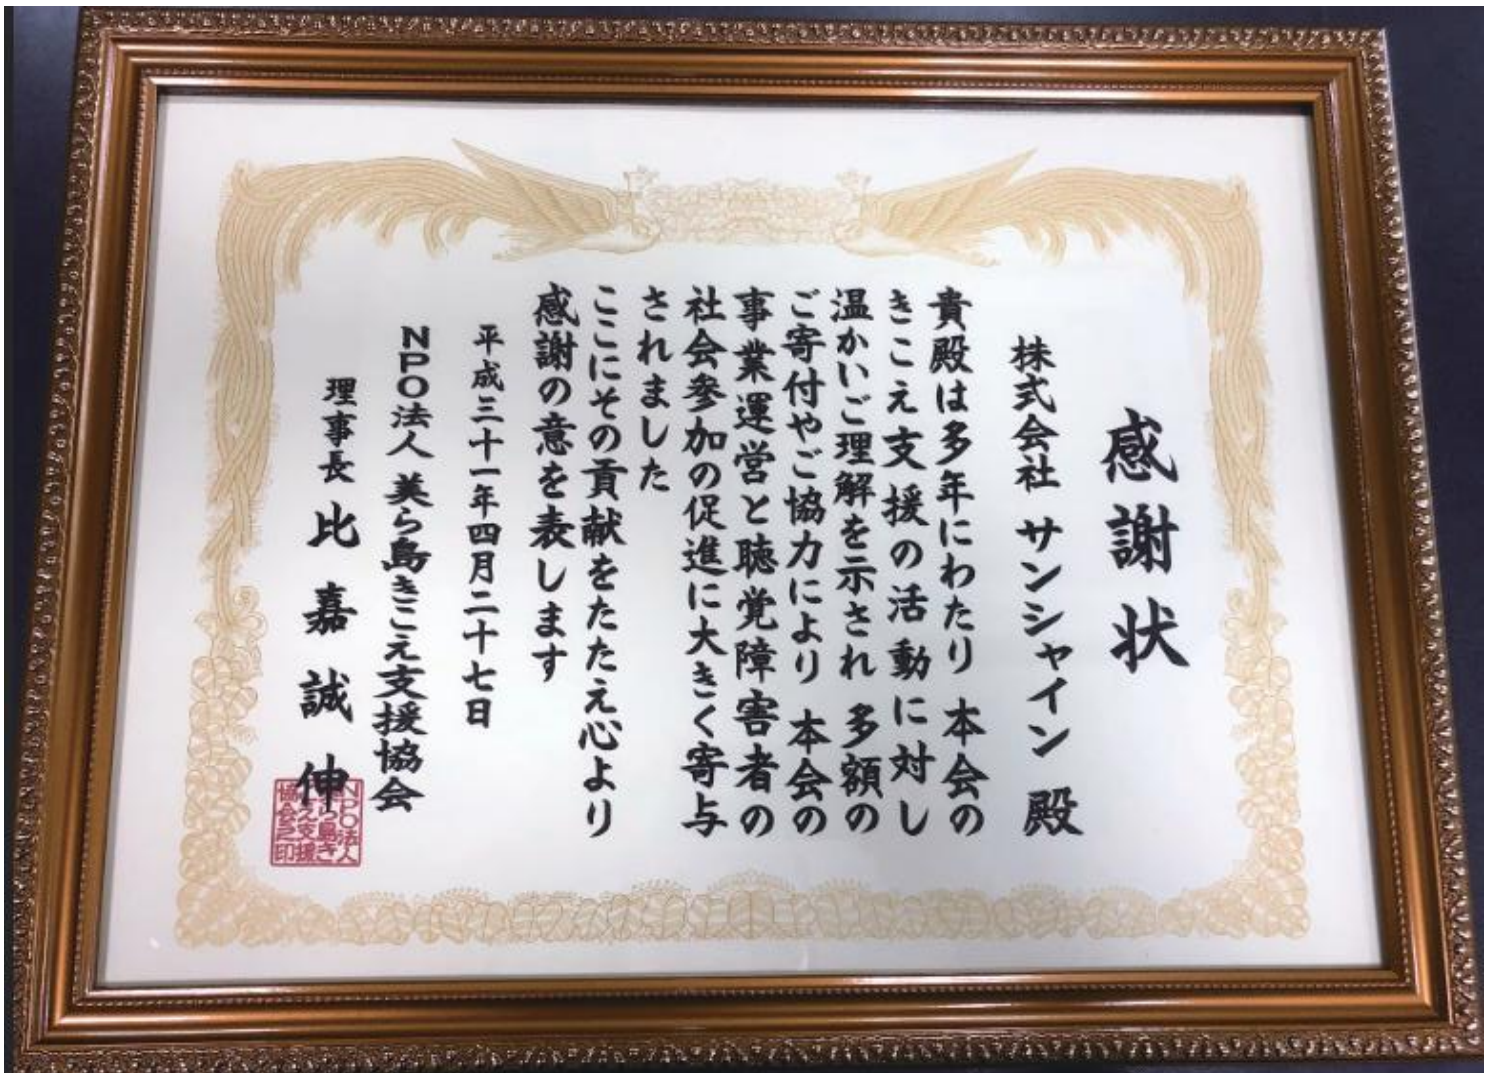 感謝状
株式会社 サンシャイン 殿
貴殿は多年にわたり 本会の
きこえ支援の活動に対し
温かいご理解を示され 多額の
ご寄付やご協力により 本会の
事業運営と聴覚障害者の
社会参加の促進に大きく寄与
されました
ここにその貢献をたたえ心より
感謝の意を表します
平成三十一年四月二十七日
NPO法人 美ら島きこえ支援協会
理事長 比嘉誠伸
NPO法人
美ら島き
こえ支援
協会之印